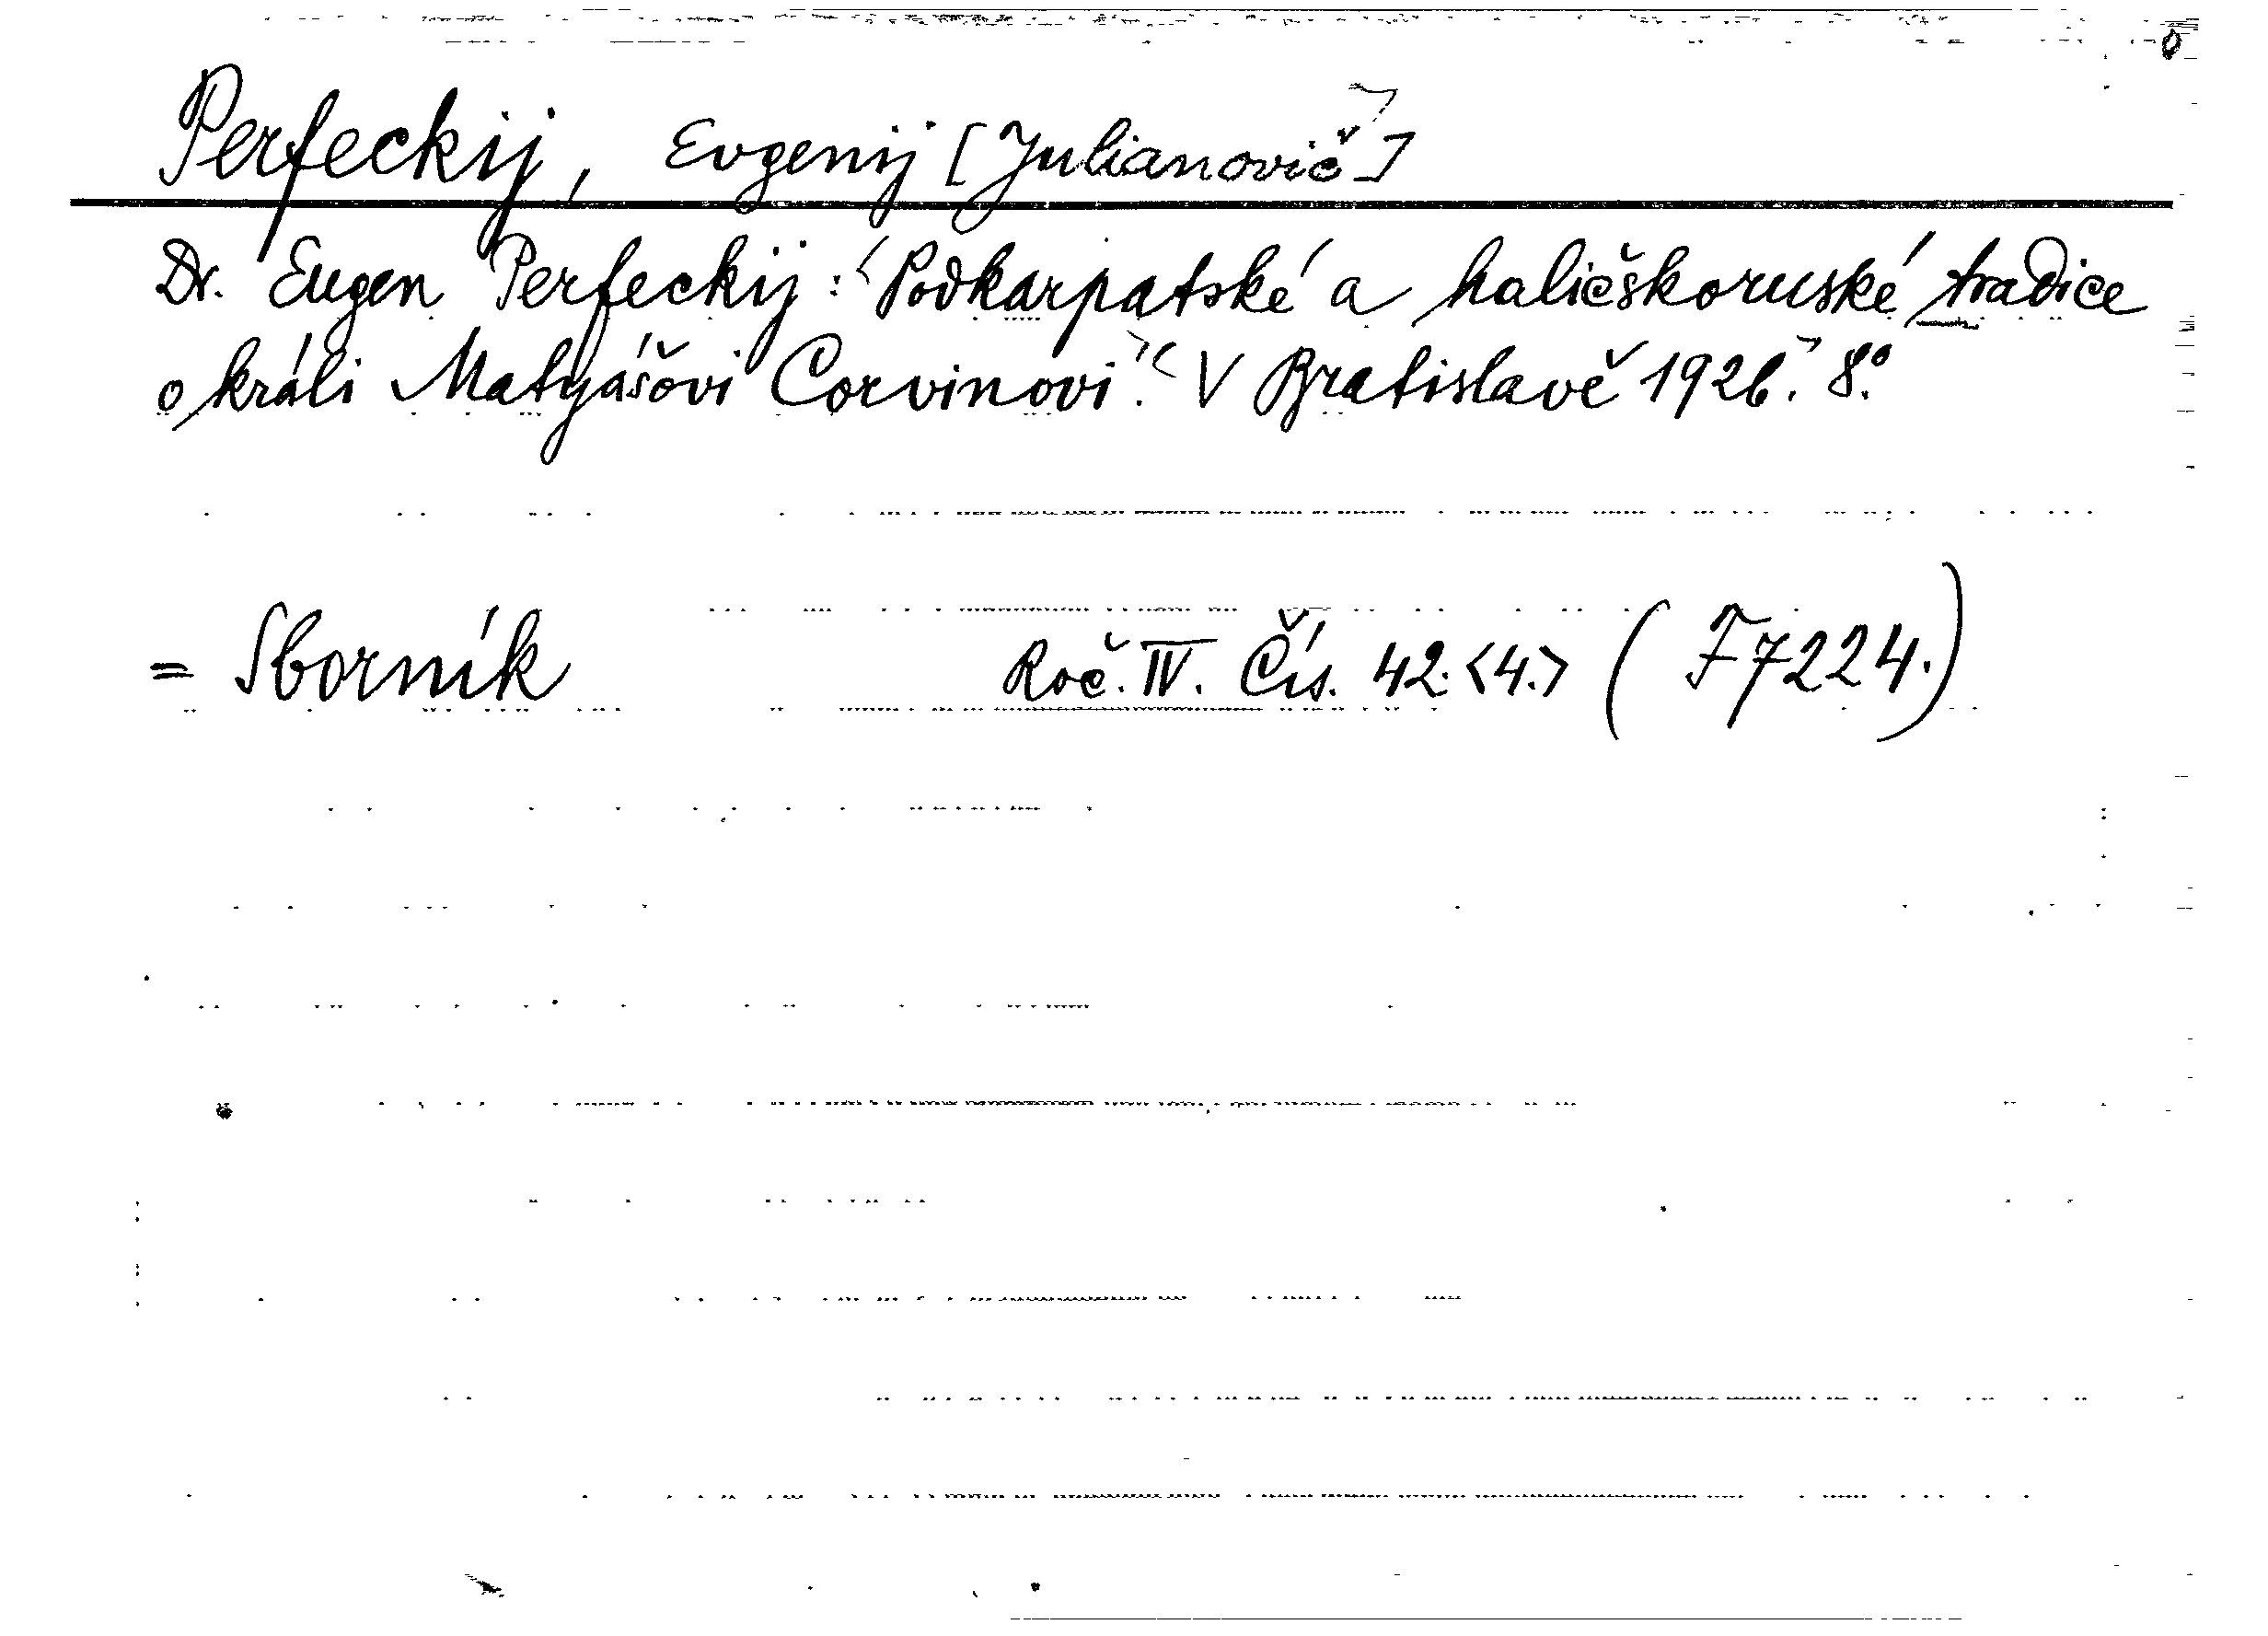 Perfeckij, Evgenij [Julianovič]
Dr. Eugen Perfeckij: Podkarpatské a haličskoruské tradice
o králi Matyášovi Corvinovi. V Bratislavě 1926. 8.°
= Sborník Roč. IV. Čís. 42. <4.> (F7224.)